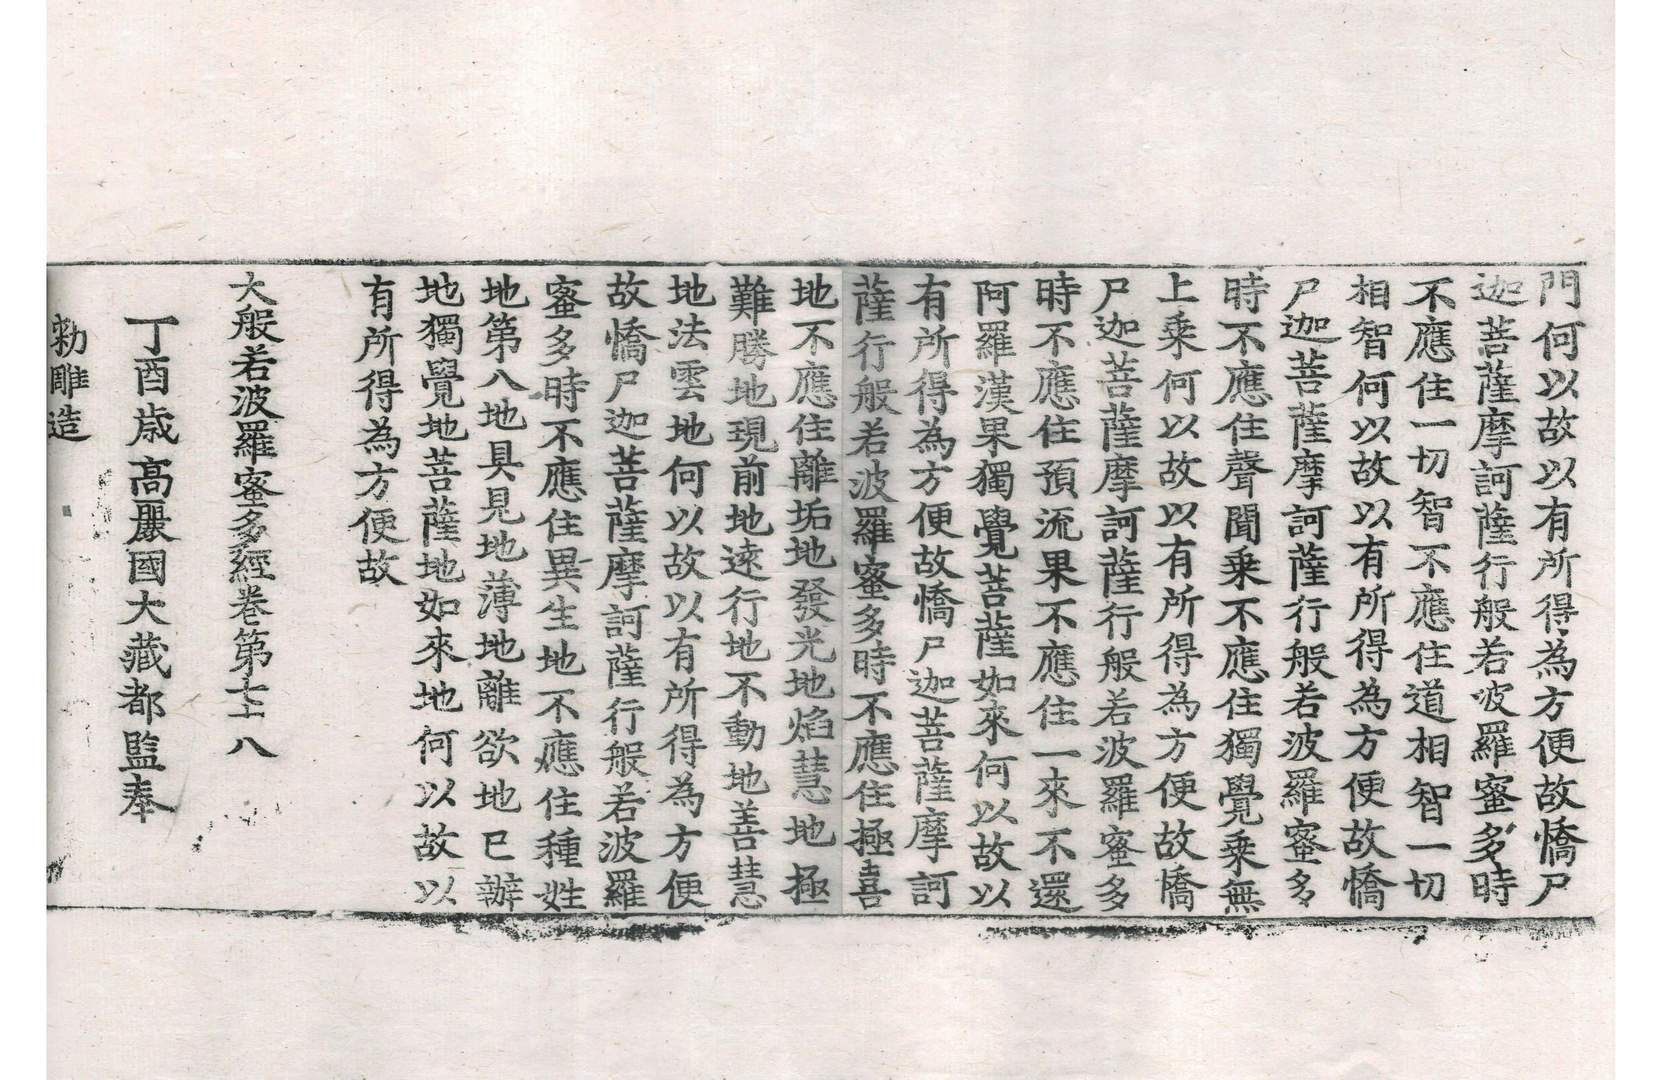 門何以故以有所得為方便故憍尸
迦菩薩摩訶薩行般若波羅蜜多時
不應住一切智不應住道相智一切
相智何以故以有所得為方便故憍
尸迦菩薩摩訶薩行般若波羅蜜多
時不應住聲聞乗不應住獨覺乗無
上乗何以故以有所得為方便故憍
尸迦菩薩摩訶薩行般若波羅蜜多
時不應住預流果不應住一來不還
阿羅漢果獨覺菩薩如來何以故以
有所得為方便故憍尸迦菩薩摩訶
薩行般若波羅蜜多時不應住極喜
地不應住離垢地發光地焰慧地極
難勝地現前地遠行地不動地善慧
地法雲地何以故以有所得為方便
故憍尸迦菩薩摩訶薩行般若波羅
蜜多時不應住異生地不應住種姓
地第八地具見地薄地離欲地已辦
地獨覺地菩薩地如來地何以故以
有所得為方便故
大般若波羅蜜多經卷第七十八
丁酉歳高麗國大藏都監奉
勑雕造